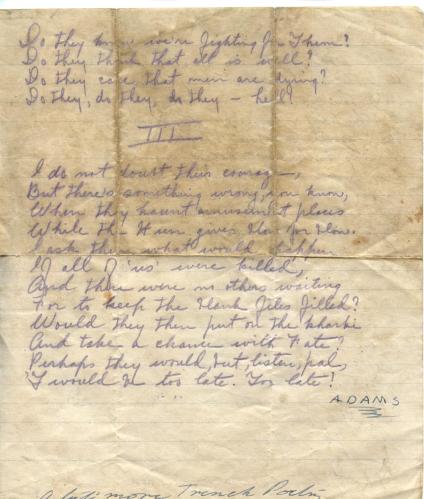 Do they know we're fighting for Them?
Do they think that all is well?
Do they care that men are dying?
Do they, do they, do they — hell!
III
I do not doubt their courage,
But there's something wrong, you know,
When they haunt amusement places
While the Hun gives blow for blow.
I ask them what would happen
If all of 'us' were killed,
And there were no others waiting
For to keep the blank files filled?
Would they then put on the kharki
And take a chance with Fate?
Perhaps they would, but, listen, pal,
'T would be too late. Too late!
ADAMS
more Trench